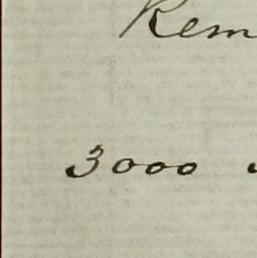 Rem
3000